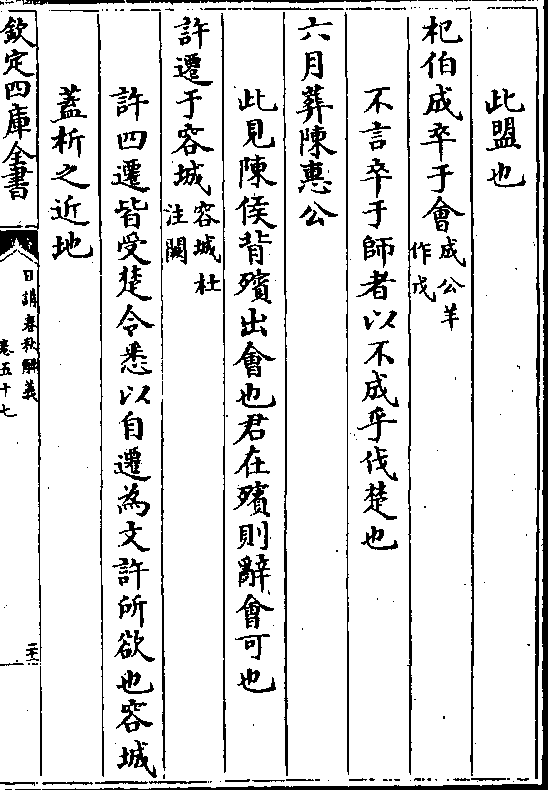 此盟也
杞伯成卒于會成公羊作戊
不言卒于師者以不成乎伐楚也
六月葬陳惠公
此見陳侯背殯出會也君在殯則辭會可也
許遷于容城容城杜注闕
許四遷皆受楚令悉以自遷為文許所欲也容城
蓋析之近地
欽定四庫全書
日講春秋解義
卷五十七